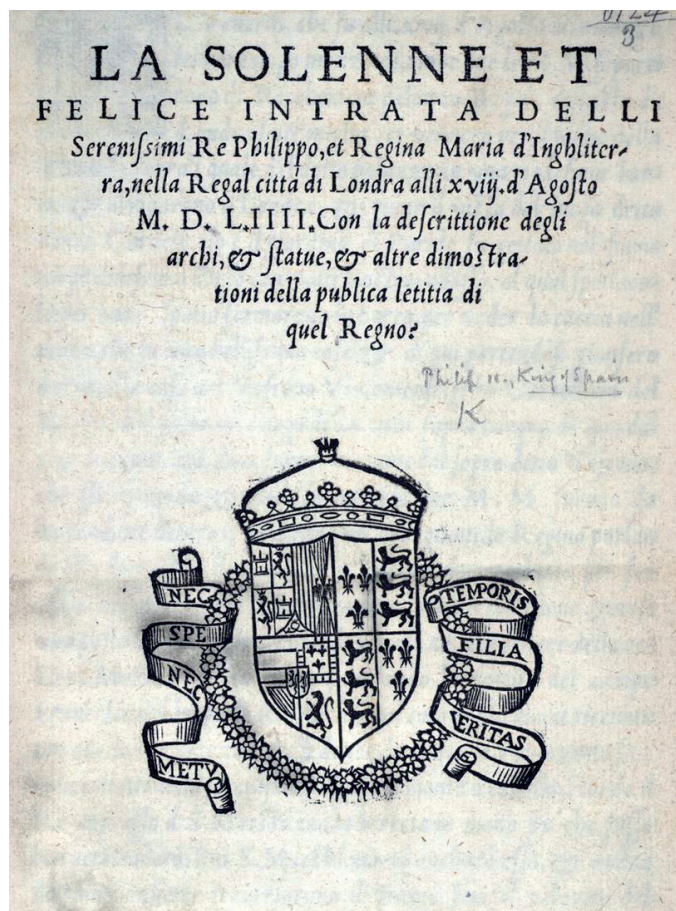 LA SOLENNE ET
FELICE INTRATA DELLI
Sereniſsimi Re Philippo, et Regina Maria d'Inghliter-
ra, nella Regal città di Londra alli xviij. d'Agoſto
M. D. LIIII. Con la deſcrittione degli
archi, & ſtatue, & altre dimoſtra-
tioni della publica letitia di
quel Regno.
Philip II., King of Spain
K
NEC
SPE
NEC
METV
TEMPORIS
FILIA
VERITAS